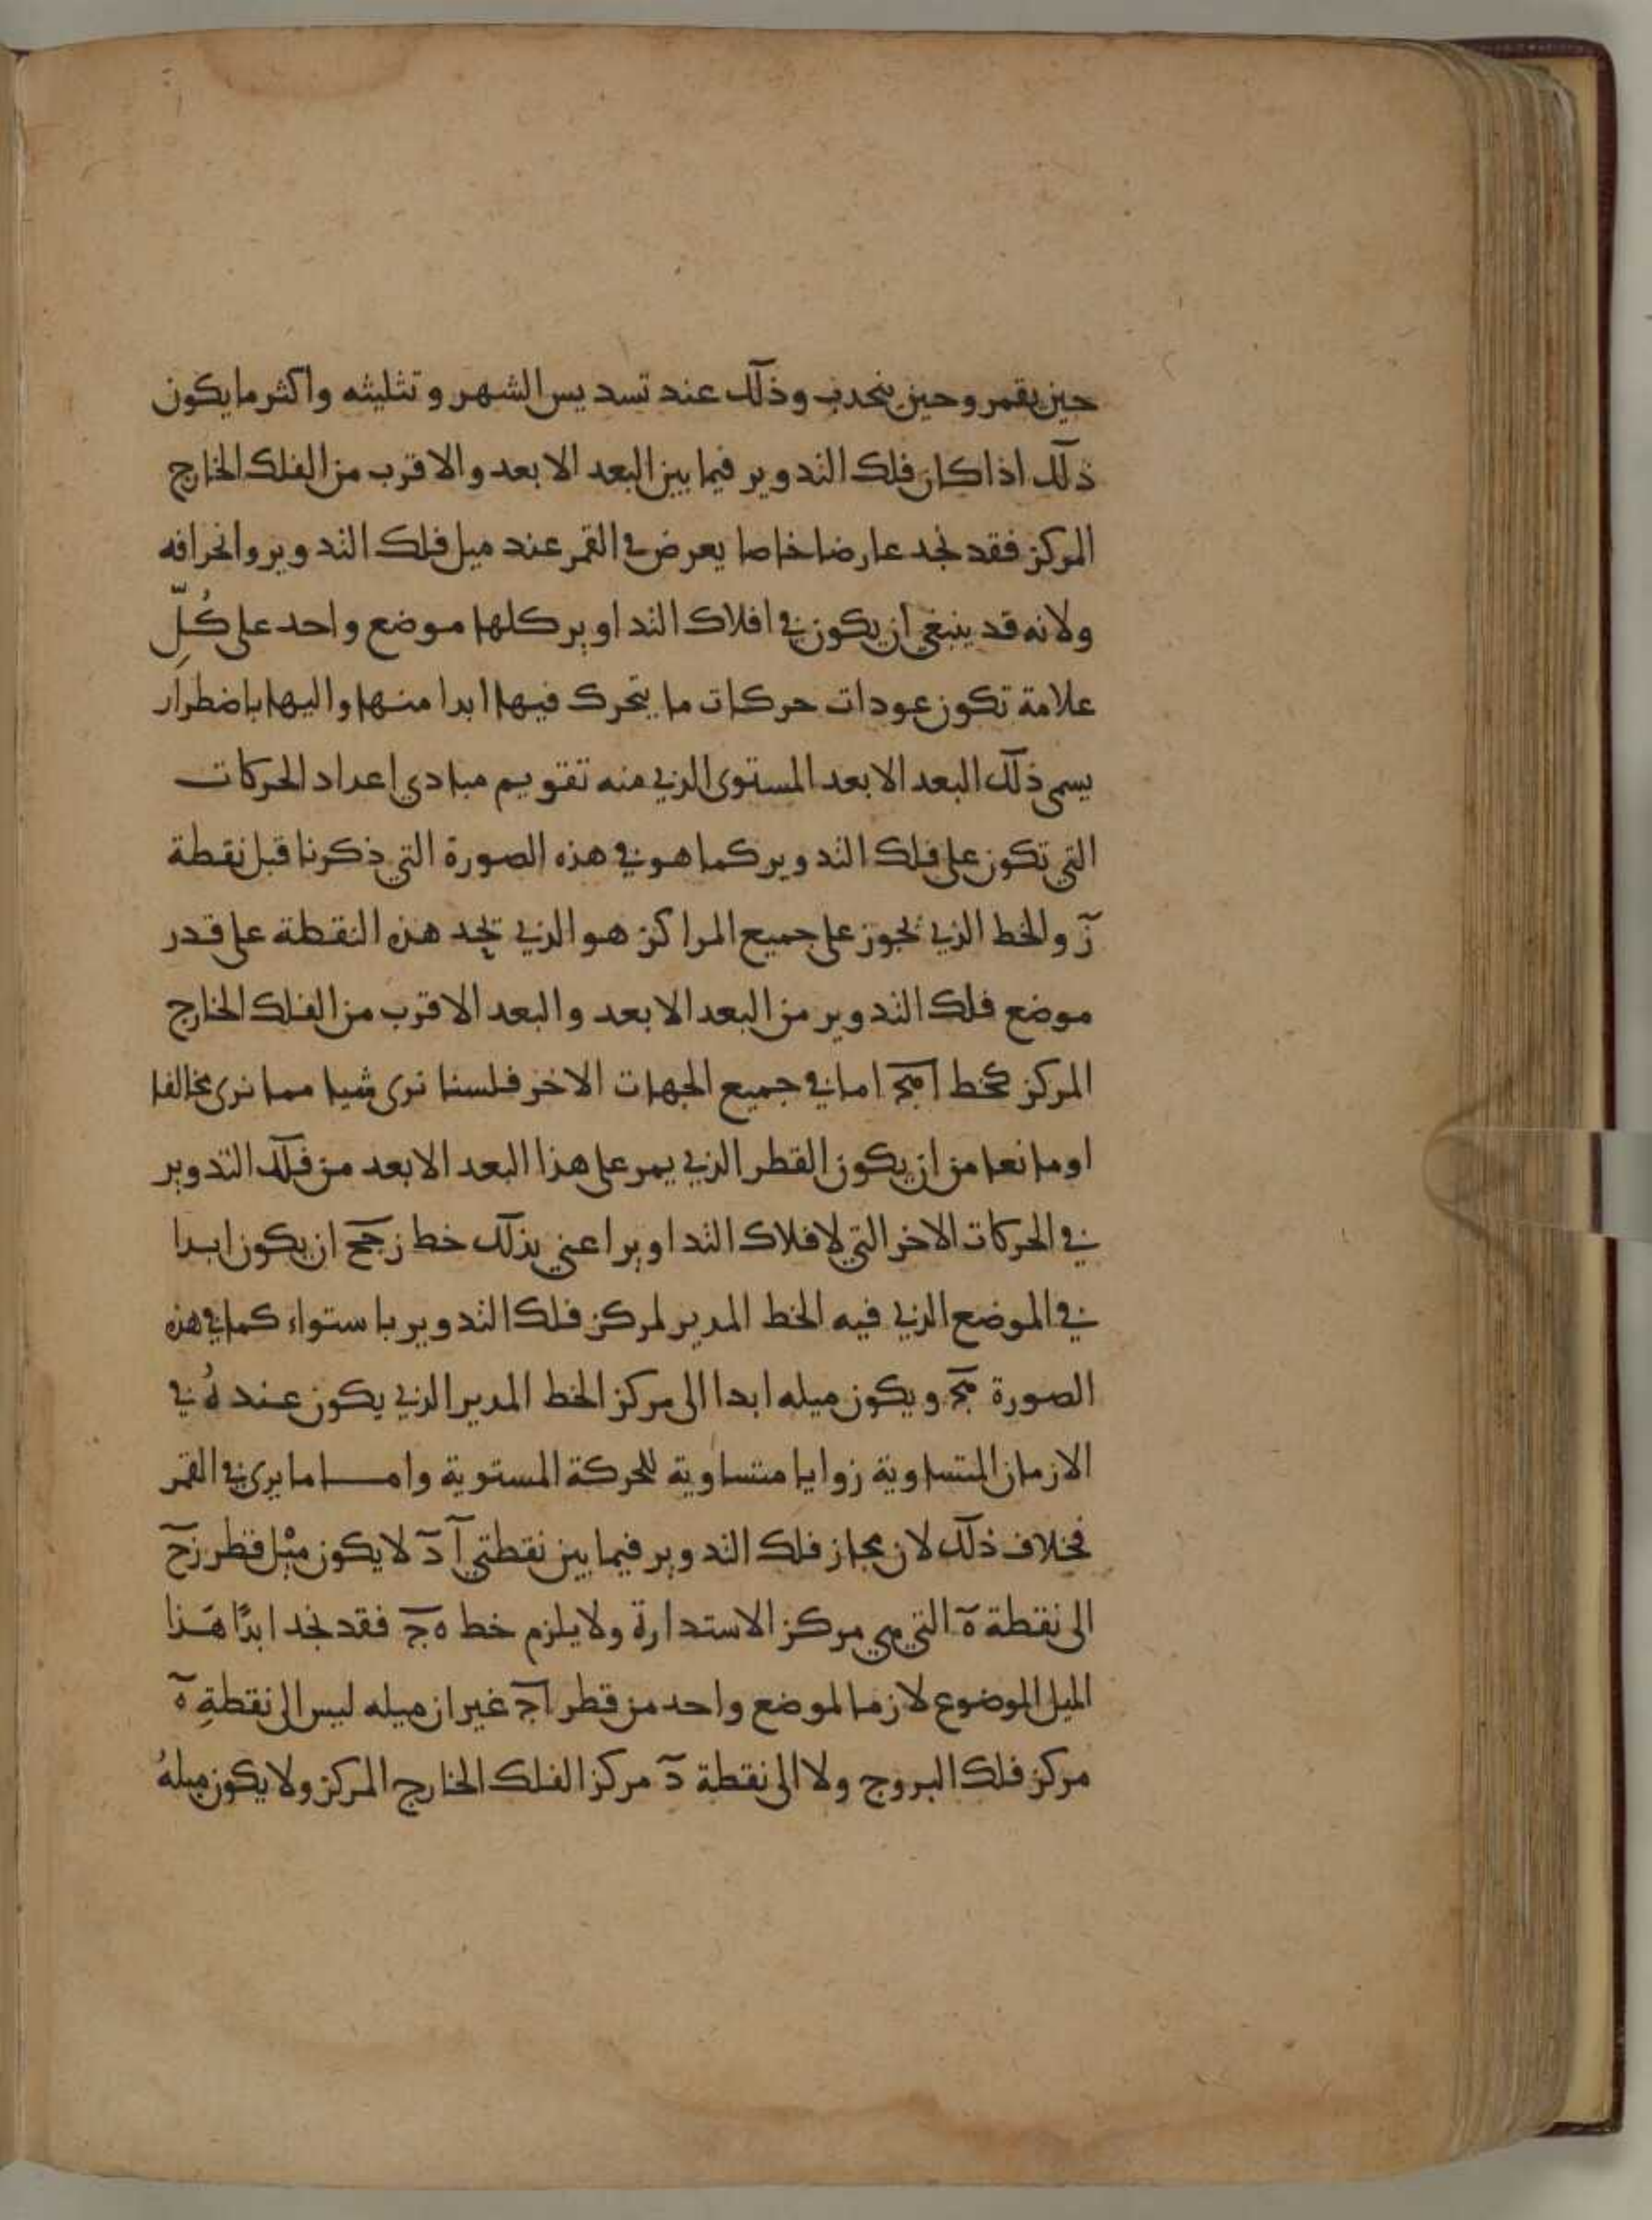 حين يقمر وحين ينحدب وذلك عند تسديس الشهر وتثليثه واكثر ما يكون
ذلك اذا كان فلك التدوير فيما بين البعد الابعد والاقرب من الفلك الخارج
المركز فقد نجد عارضا خاصا يعرض في القمر عند ميل فلك التدوير وانحرافه
ولانه قد ينبغي ان يكون في افلاك التداوير كلها موضع واحد على كُلِّ
علامة تكون عودات حركات ما يتحرك فيها ابدا منها واليها باضطرار
يسمى ذلك البعد الابعد المستوى الذي منه تقويم مبادي اعداد الحركات
التي تكون على فلك التدوير كما هو في هذه الصورة التي ذكرنا قبل نقطة
ز والخط الذي يجوز على جميع المراكز هو الذي يحد هذه النقطة على قدر
موضع فلك التدوير من البعد الابعد والبعد الاقرب من الفلك الخارج
المركز كخط اهج اما في جميع الجهات الاخر فلسنا نرى شيا مما نرى مخالفا
او مانعا من ان يكون القطر الذي يمر على هذا البعد الابعد من فلك التدوير
في الحركات الاخر التي لافلاك التداوير اعني بذلك خط زجح ان يكون ابدا
في الموضع الذي فيه الخط المدير لمركز فلك التدوير باستواء كما في هذه
الصورة هج ويكون ميله ابدا الى مركز الخط المدير الذي يكون عنده في
الازمان المتساوية زوايا متساوية للحركة المستوية واما ما يرى في القمر
فخلاف ذلك لان مجاز فلك التدوير فيما بين نقطتي آ د لا يكون ميل قطر زح
الى نقطة ه التي هي مركز الاستدارة ولا يلزم خط ه ج فقد نجد ابدًا هذا
الميل الموضوع لازما لموضع واحد من قطر اج غير ان ميله ليس الى نقطةِ ه
مركز فلك البروج ولا الى نقطة د مركز الفلك الخارج المركز ولا يكون ميلهُ